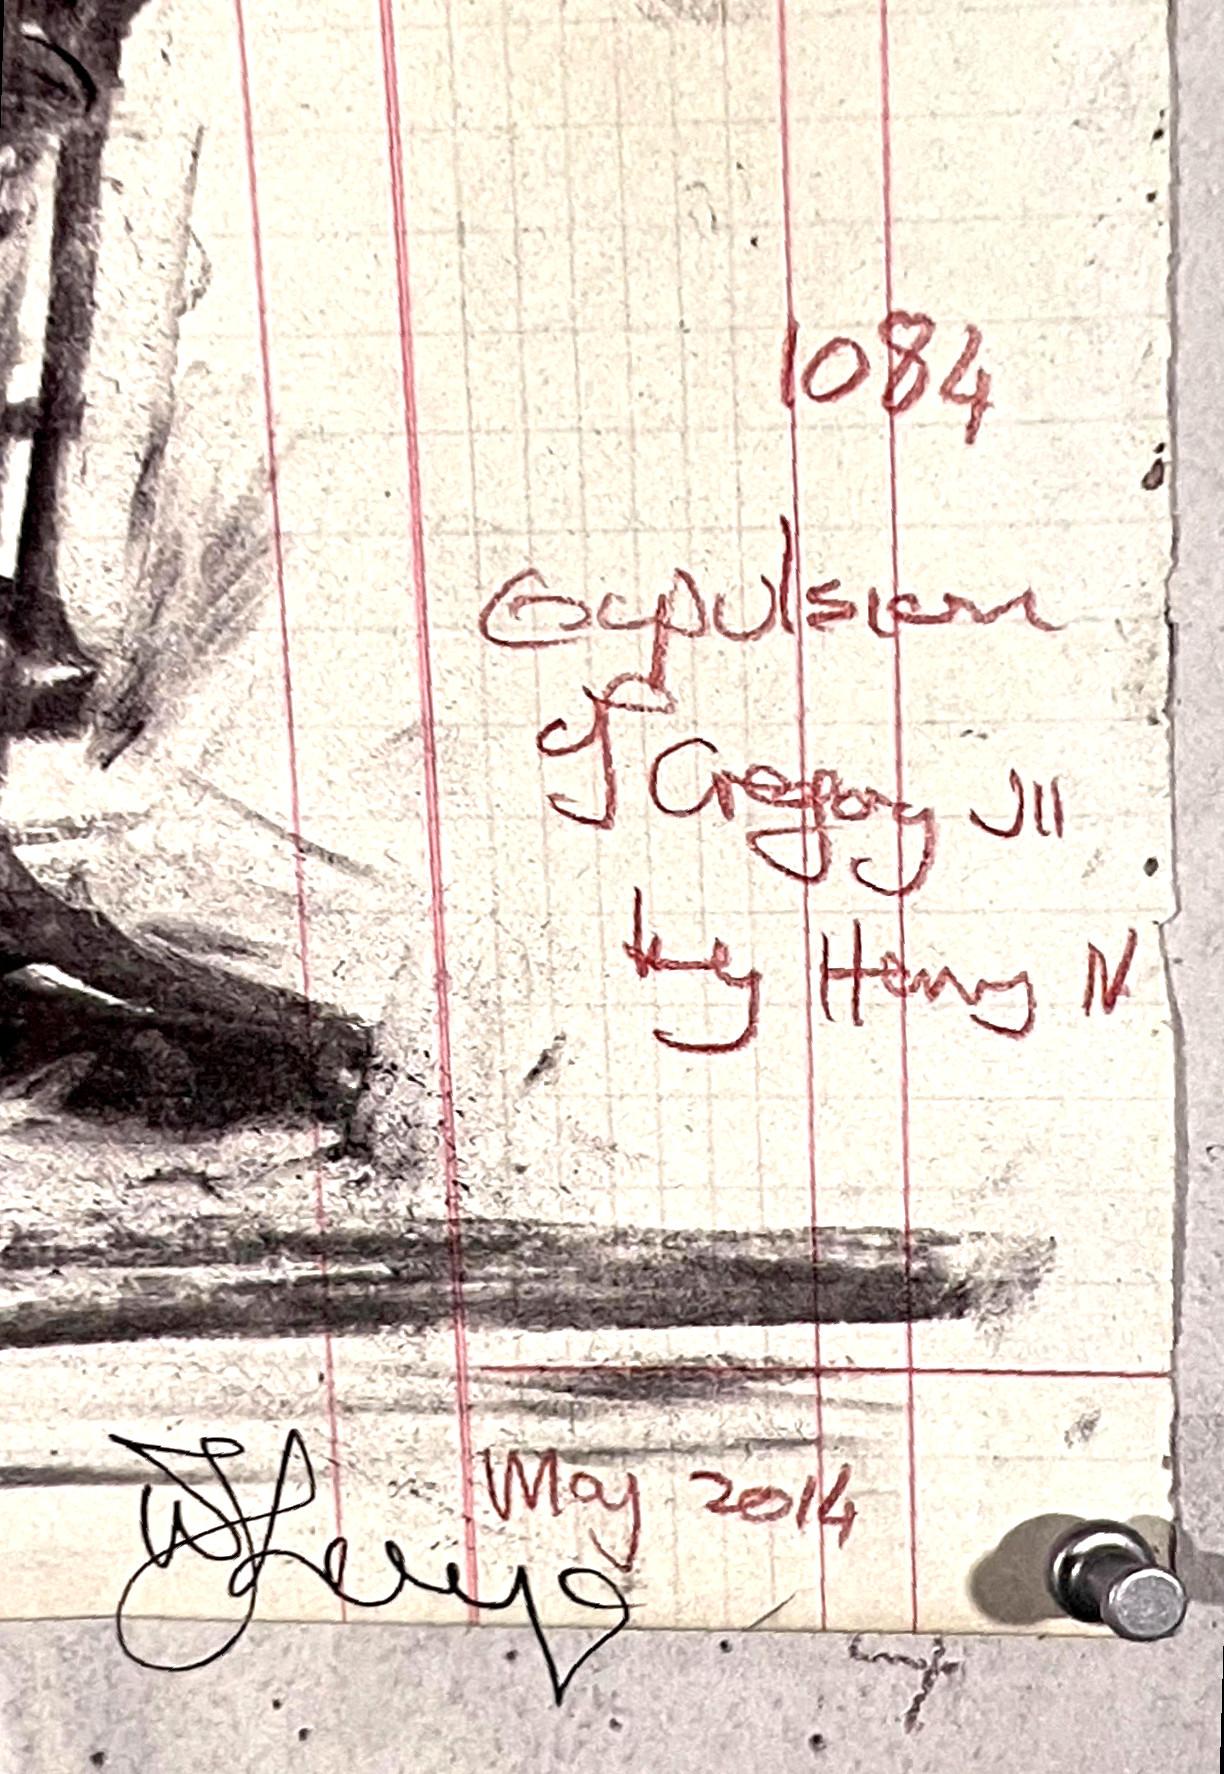 1084
Expulsion
of Gregory VII
by Henry IV
May 2014